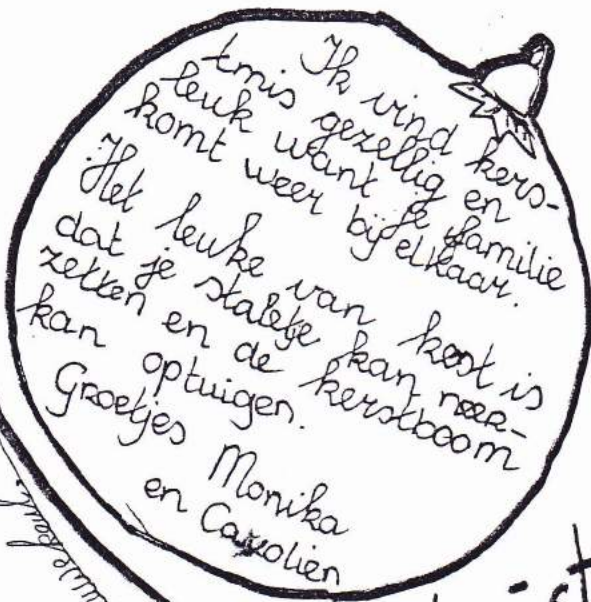 Ik vind kers-
tmis gezellig en
leuk want je familie
komt weer bij elkaar.
Het leuke van kerst is
dat je stalletje kan neer-
zetten en de kerstboom
kan optuigen.
Groetjes Monika
en Carolien